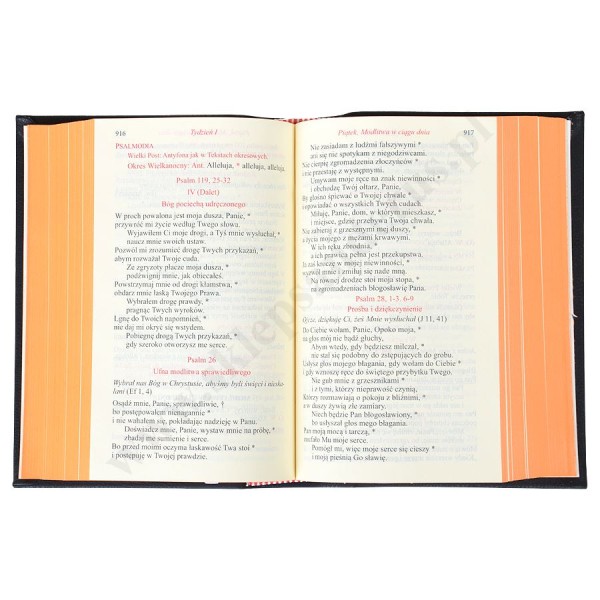 916
Tydzień I
PSALMODIA
Wielki Post: Antyfona jak w Tekstach okresowych.
Okres Wielkanocny: Ant. Alleluja, * alleluja, alleluja.
Psalm 119, 25-32
IV (Dalet)
Bóg pociechą udręczonego
W proch powalona jest moja dusza, Panie, *
przywróć mi życie według Twego słowa.
Wyjawiłem Ci moje drogi, a Tyś mnie wysłuchał, *
naucz mnie swoich ustaw.
Pozwól mi zrozumieć drogę Twych przykazań, *
abym rozważał Twoje cuda.
Ze zgryzoty płacze moja dusza, *
podźwignij mnie, jak obiecałeś.
Powstrzymaj mnie od drogi kłamstwa, *
obdarz mnie łaską Twojego Prawa.
Wybrałem drogę prawdy, *
pragnąc Twych wyroków.
Lgnę do Twoich napomnień, *
nie daj mi okryć się wstydem.
Pobiegnę drogą Twych przykazań, *
gdy szeroko otworzysz me serce.
Psalm 26
Ufna modlitwa sprawiedliwego
Wybrał nas Bóg w Chrystusie, abyśmy byli święci i nieska-
lani (Ef 1, 4)
Osądź mnie, Panie, sprawiedliwie, †
bo postępowałem nienagannie *
i nie wahałem się, pokładając nadzieję w Panu.
Doświadcz mnie, Panie, wystaw mnie na próbę, *
zbadaj me sumienie i serce.
Bo przed moimi oczyma łaskawość Twa stoi *
i postępuję w Twojej prawdzie.
Piątek, Modlitwa w ciągu dnia
917
Nie zasiadam z ludźmi fałszywymi *
ani się nie spotykam z niegodziwcami.
Nie cierpię zgromadzenia złoczyńców *
i nie przestaję z występnymi.
Umywam moje ręce na znak niewinności *
i obchodzę Twój ołtarz, Panie,
By głośno śpiewać i chwałę *
i opowiadać o wszystkich Twych cudach.
Miłuję, Panie, dom, w którym mieszkasz, *
i miejsce, gdzie przebywa Twoja chwała.
Nie zabieraj z grzesznymi mej duszy, *
a życia mojego z mężami krwawymi.
W ich ręku zbrodnia, *
a ich prawica pełna jest przekupstwa.
Ja zaś kroczę w mojej niewinności, *
wyzwól mnie i zmiłuj się nade mną.
Na równej drodze stoi moja stopa, *
na zgromadzeniach błogosławię Pana.
Psalm 28, 1-3. 6-9
Prośba i dziękczynienie
Ojcze, dziękuję Ci, żeś Mnie wysłuchał (J 11, 41)
Do Ciebie wołam, Panie, Opoko moja, *
na głos mój nie bądź głuchy,
Abym wtedy, gdy będziesz milczał, *
nie stał się podobny do zstępujących do grobu.
Usłysz głos mojego błagania, gdy wołam do Ciebie *
i gdy wznoszę ręce do świętego przybytku Twego.
Nie gub mnie z grzesznikami *
i z tymi, którzy nieprawość czynią,
Którzy rozmawiają o pokoju z bliźnimi, *
a w duszy żywią złe zamiary.
Niech będzie Pan błogosławiony, *
bo usłyszał głos mego błagania.
Pan moją mocą i tarczą, *
zaufało Mu moje serce.
Pomógł mi, więc moje serce się cieszy *
i moją pieśnią Go sławię.